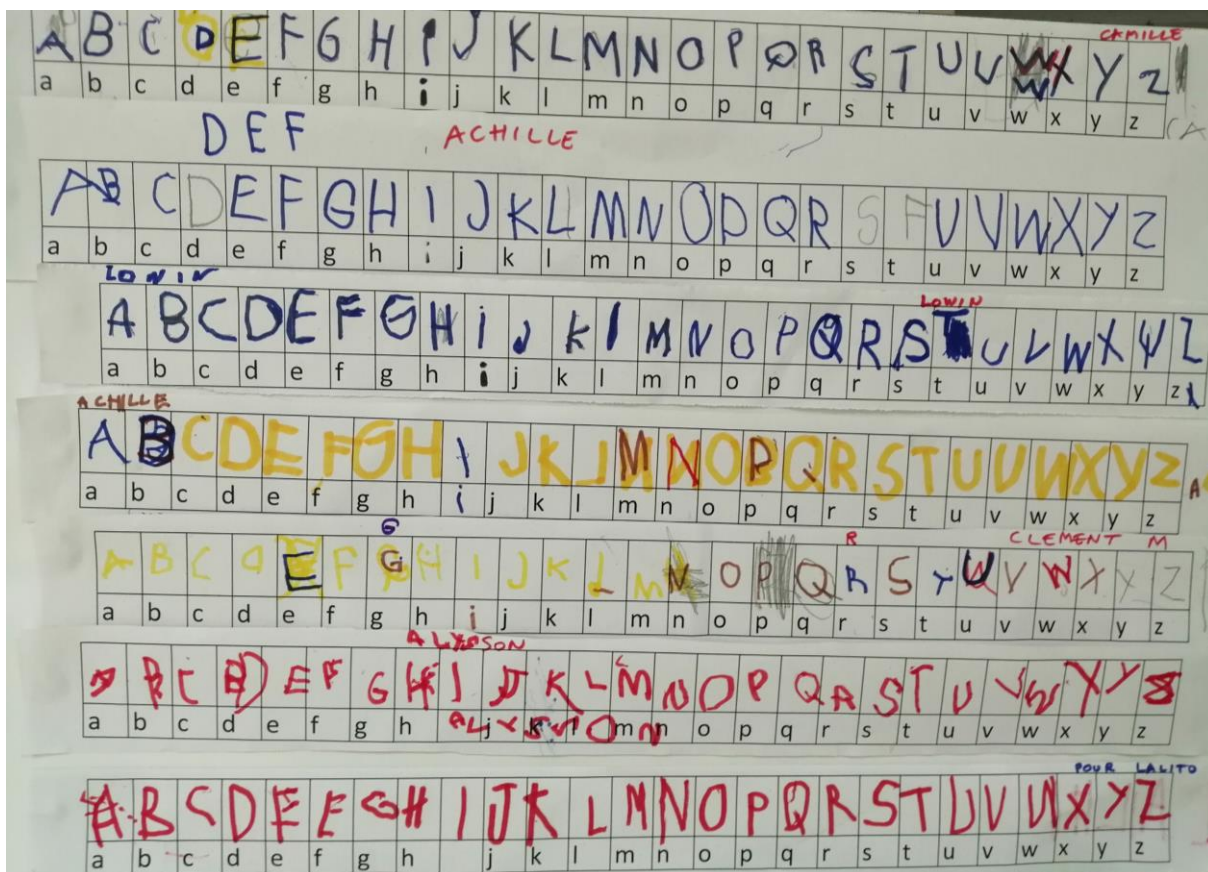 CAMILLE
A B C D E F G H I J K L M N O P Q R S T U V W X Y Z
a b c d e f g h i j k l m n o p q r s t u v w x y z
CA
D E F ACHILLE
A B C D E F G H I J K L M N O P Q R S F U V W X Y Z
a b c d e f g h i j k l m n o p q r s t u v w x y z
LOWIN LOWIN
A B C D E F G H i J k l M N O P Q R S T U V W X Y Z
a b c d e f g h i j k l m n o p q r s t u v w x y z
ACHILLE
A B C D E F G H I J K L M N O P Q R S T U V W X Y Z A
a b c d e f g h i j k l m n o p q r s t u v w x y z
G R CLEMENT M
A B C D E F G H I J K L M N O P Q R S T U V W X Y Z
a b c d e f g h i j k l m n o p q r s t u v w x y z
ALYSON
A B C D E F G H I J K L M N O P Q R S T U V W X Y Z
a b c d e f g h ALYSON j k l m n o p q r s t u v w x y z
POUR LALITO
A B C D E E G H I J K L M N O P Q R S T U V W X Y Z
a b c d e f g h j k l m n o p q r s t u v w x y z